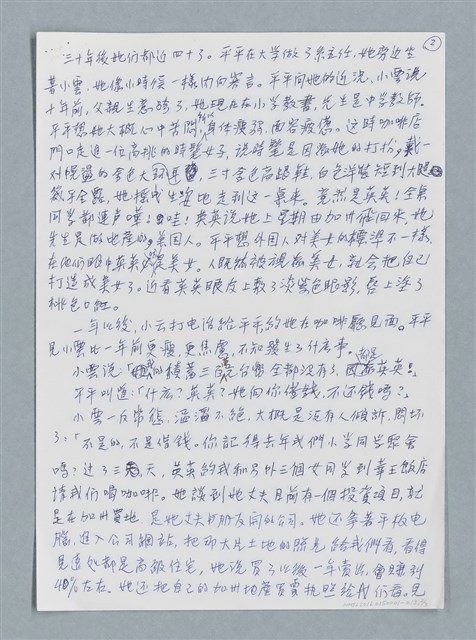 2
三十年後她们都近四十了。平平在大学做了系主任,她旁边坐
着小雲,她像小時候一樣内向寡言。平平问她的近況,小雲说
十年前,父親生意砸了,她現在在小学教書,先生是中学教师。
平平想她大概心中苦悶,身体瘦弱,面容疲憊。这時咖啡店
門口走進一位高挑的時髦女子,说時髦是因為她的打扮,戴一
对晃盪的金色大耳环,三寸金色高跟鞋,白色洋裝短到大腿
幾乎全露,她搖曳生姿地走到这一桌来。竟然是英英!全桌
同学都連声嘩!哇!英英说她上星期由加州飛回来,她
先生是做地產的美国人。平平想外国人对美女的標準不一樣,
在他们眼中英英是美女。人既然被視為美女,就会把自己
打造成美女了。近看英英眼皮上敷了淡紫色眼影,唇上塗了
桃色口红。
一年以後,小云打电话給平平約她在咖啡廳見面。平平
見小雲比一年前更瘦,更焦慮,不知發生了什麽事。
小雲说:「我的積蓄三百萬台幣全部没有了,都是因為英英!」
平平叫道:「什麽?英英?她向你借錢,不还錢嗎?」
小雲一反常態,滔滔不絕,大概是没有人傾訴,悶坏
了:「不是的,不是借錢。你記得去年我們小学同学聚會
嗎?过了三天,英英約我和另外三個女同学到華王飯店
請我们喝咖啡。她談到她丈夫目前有一個投資項目,就
是在加州買地,是她丈夫的朋友開的公司。她还拿著平板电
腦,進入公司網站,把那大片土地的照片給我們看,看得
見遠处都是高級住宅,她说買了以後一年賣出,會賺到
40%左右。她还把自己的加州地產買賣執照給我们看。見